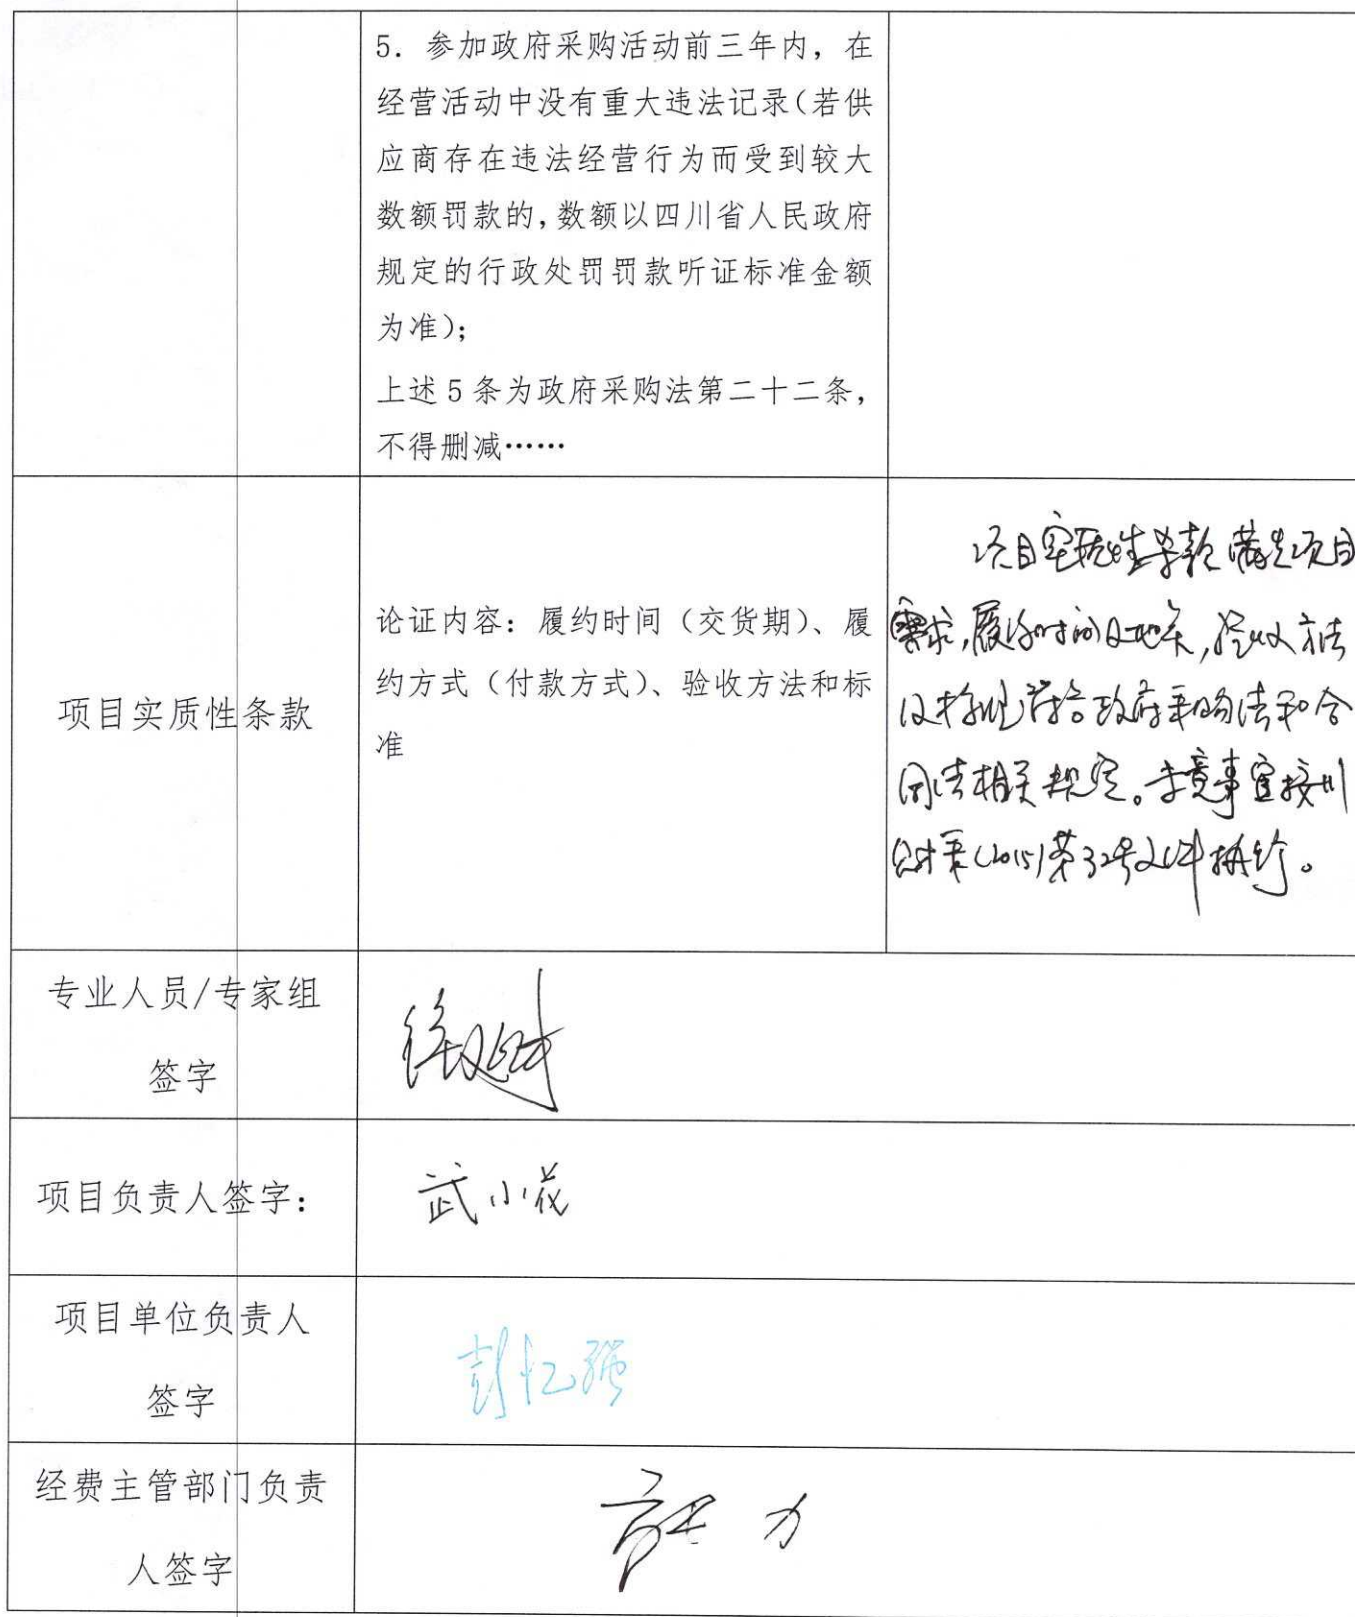 5. 参加政府采购活动前三年内，在
经营活动中没有重大违法记录(若供
应商存在违法经营行为而受到较大
数额罚款的,数额以四川省人民政府
规定的行政处罚罚款听证标准金额
为准);
上述5条为政府采购法第二十二条，
不得删减……
项目实质性条款
论证内容：履约时间（交货期）、履
约方式（付款方式）、验收方法和标
准
项目实质性条款满足项目
需求,履约时间及地点,验收方法
及标准符合政府采购法和合
同法相关规定。未竟事宜按川
财采(2015)第32号文件执行。
专业人员/专家组
签字
项目负责人签字：
武小花
项目单位负责人
签字
彭忆强
经费主管部门负责
人签字
力